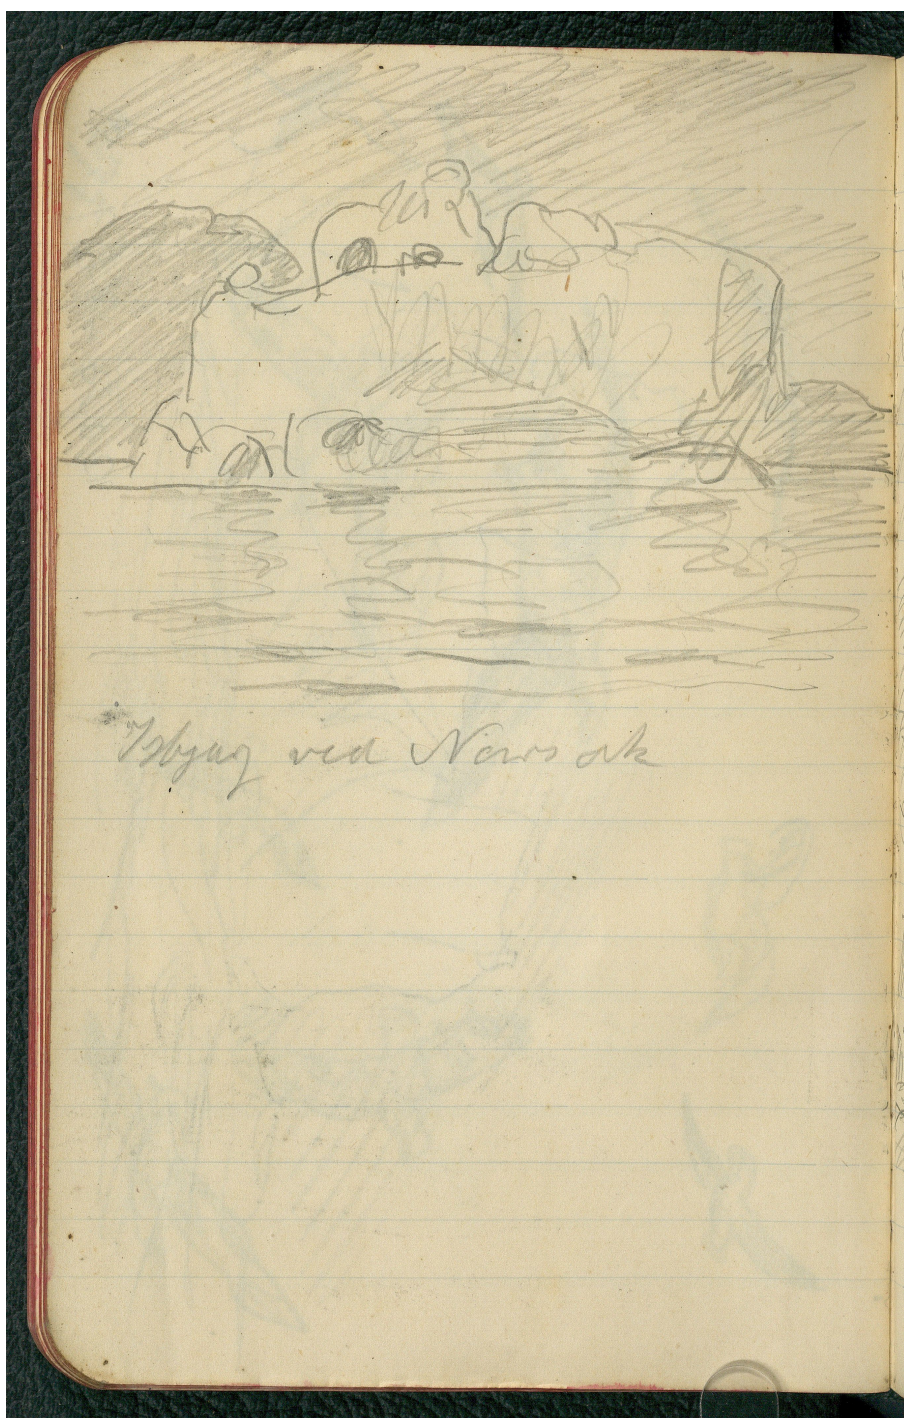 Isbjerg ved Nowsoak